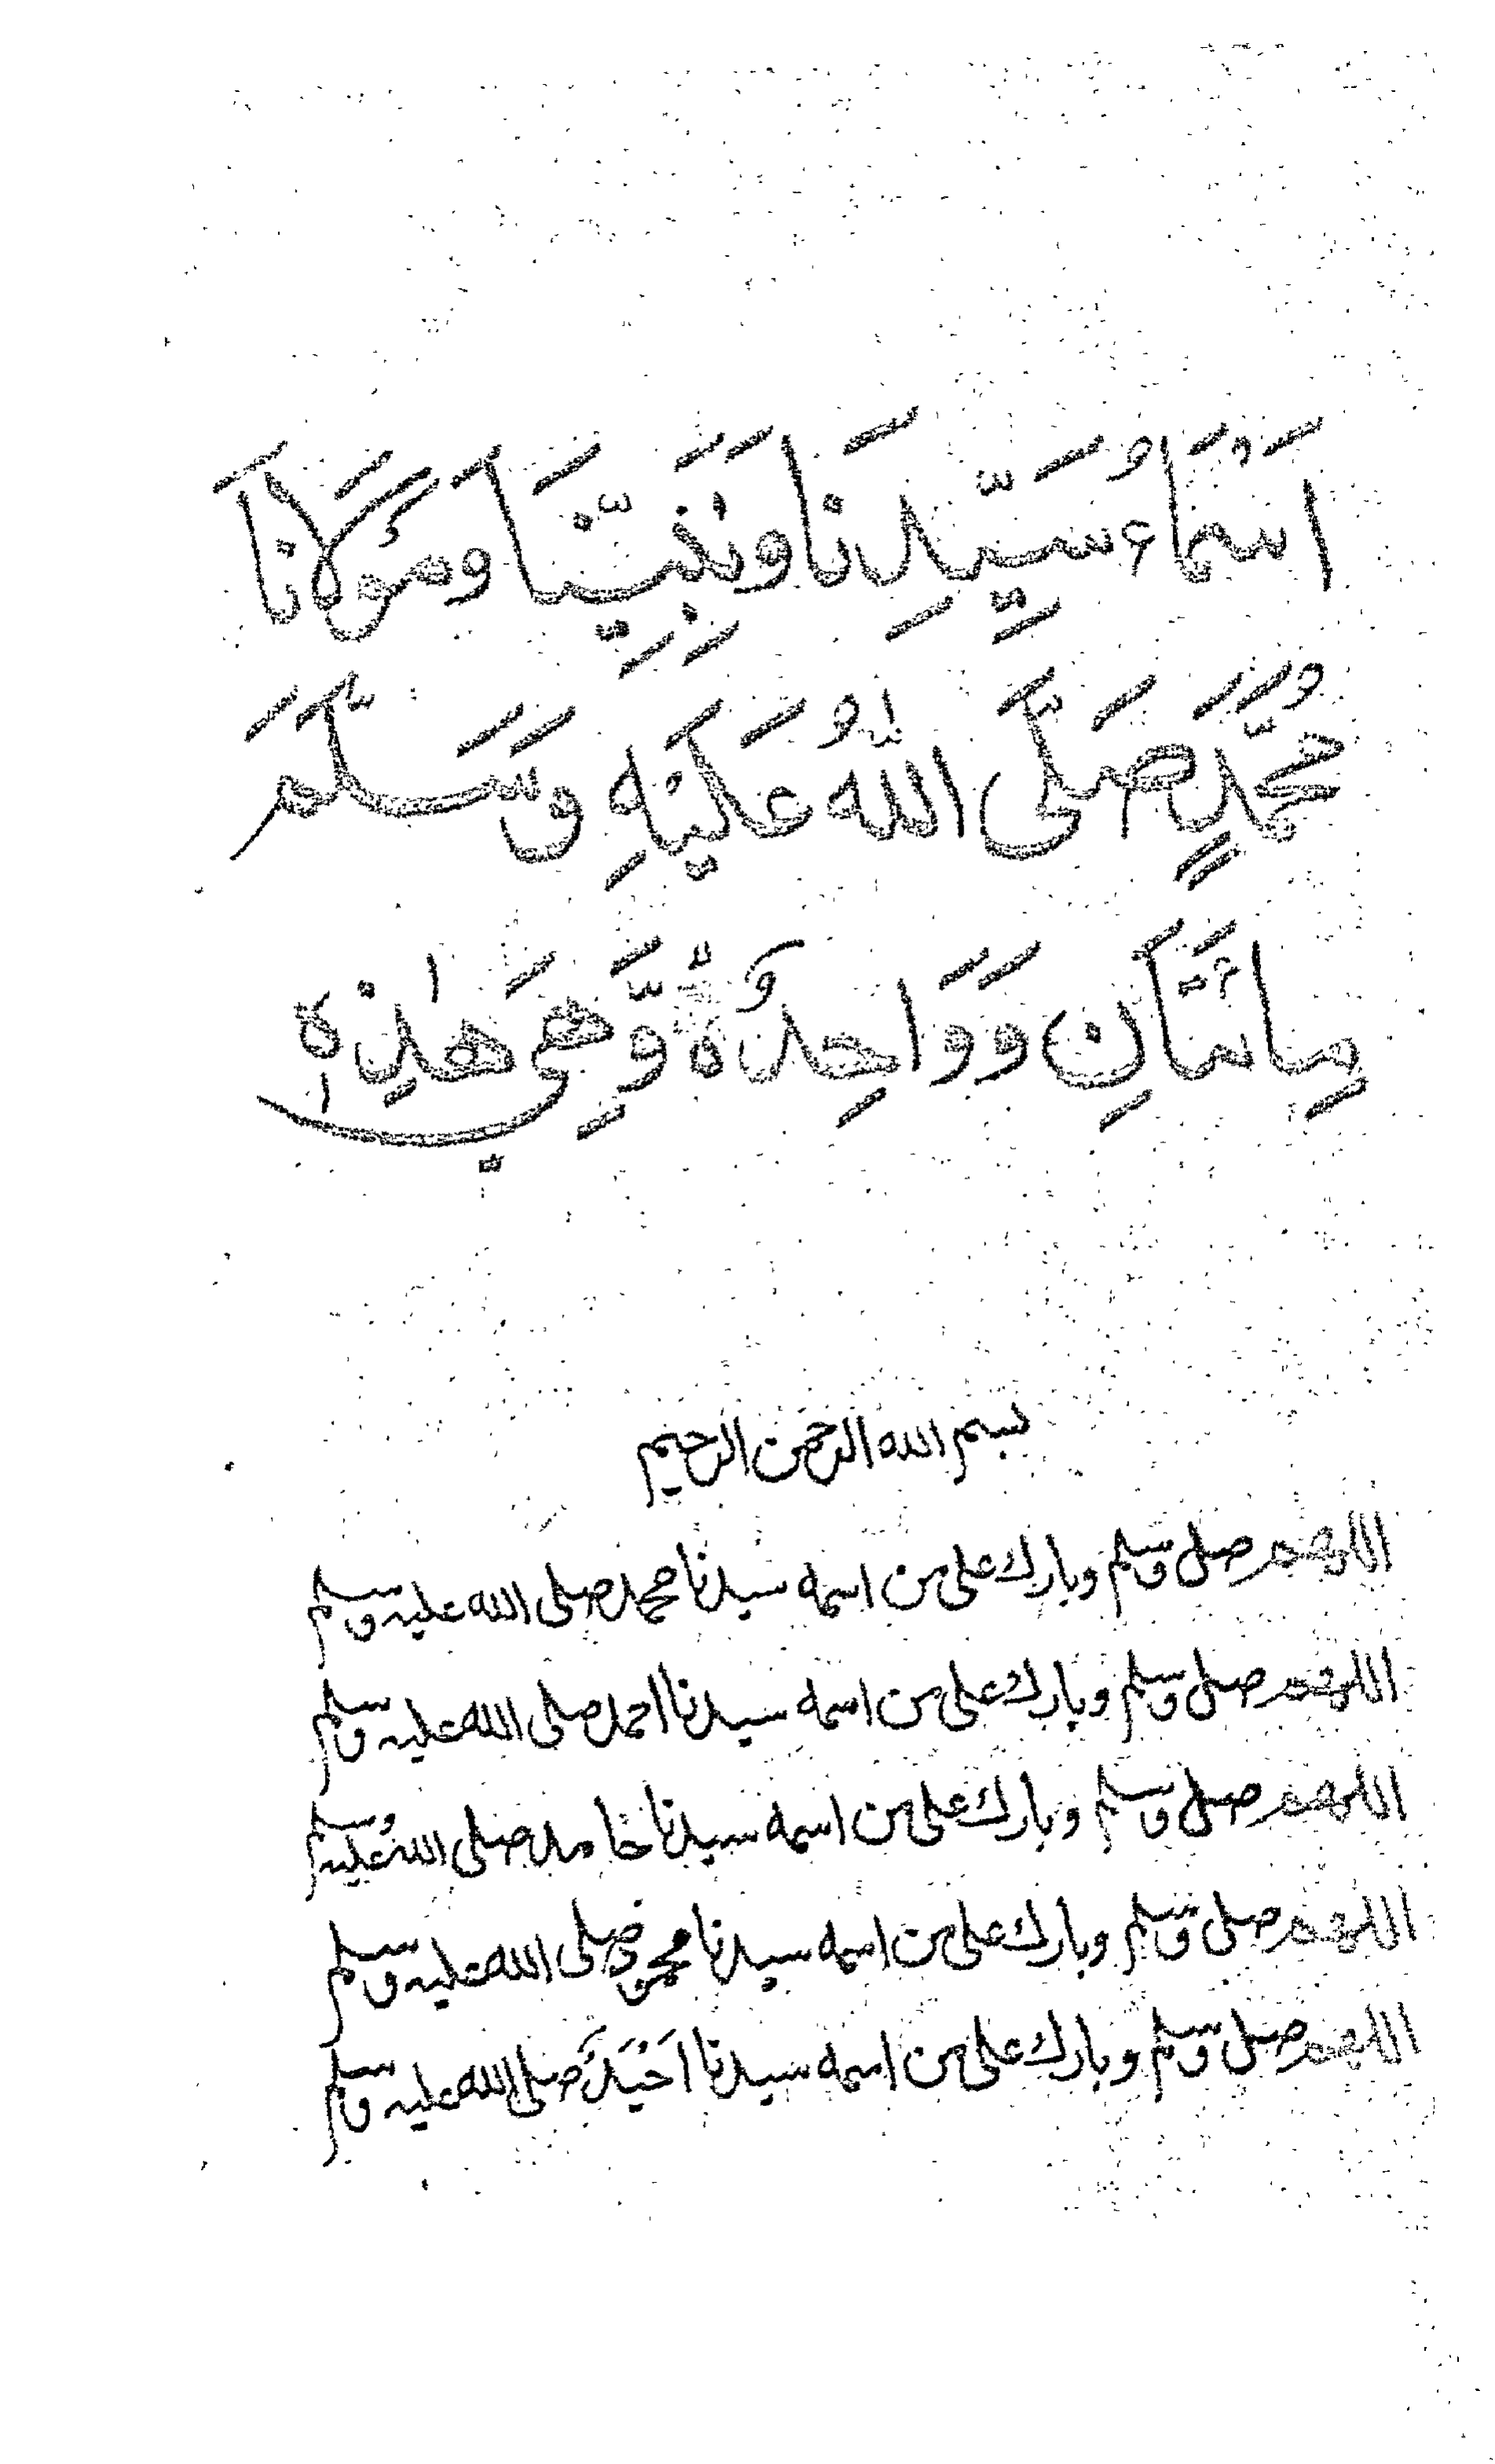 اَسْمَاءُ سَيِّدِنَا وَنَبِيِّنَا وَمَوْلَانَا
مُحَمَّدٍ صَلَّى اللهُ عَلَيْهِ وَسَلَّمَ
مِاىَٔتَانِ وَوَاحِدَةٌ وَّهِيَ هٰذِهٖ
بسم الله الرحمن الرحيم
اللهم صل وسلم وبارك على من اسمه سيدنا محمد صلى الله عليه وسلم
اللهم صل وسلم وبارك على من اسمه سيدنا احمد صلى الله عليه وسلم
اللهم صل وسلم وبارك على من اسمه سيدنا خامد صلى الله عليه وسلم
اللهم صلى وسلم وبارك على من اسمه سيدنا محمود صلى الله عليه وسلم
اللهم صل وسلم وبارك على من اسمه سيدنا اَحْيَدُ صلى الله عليه وسلم